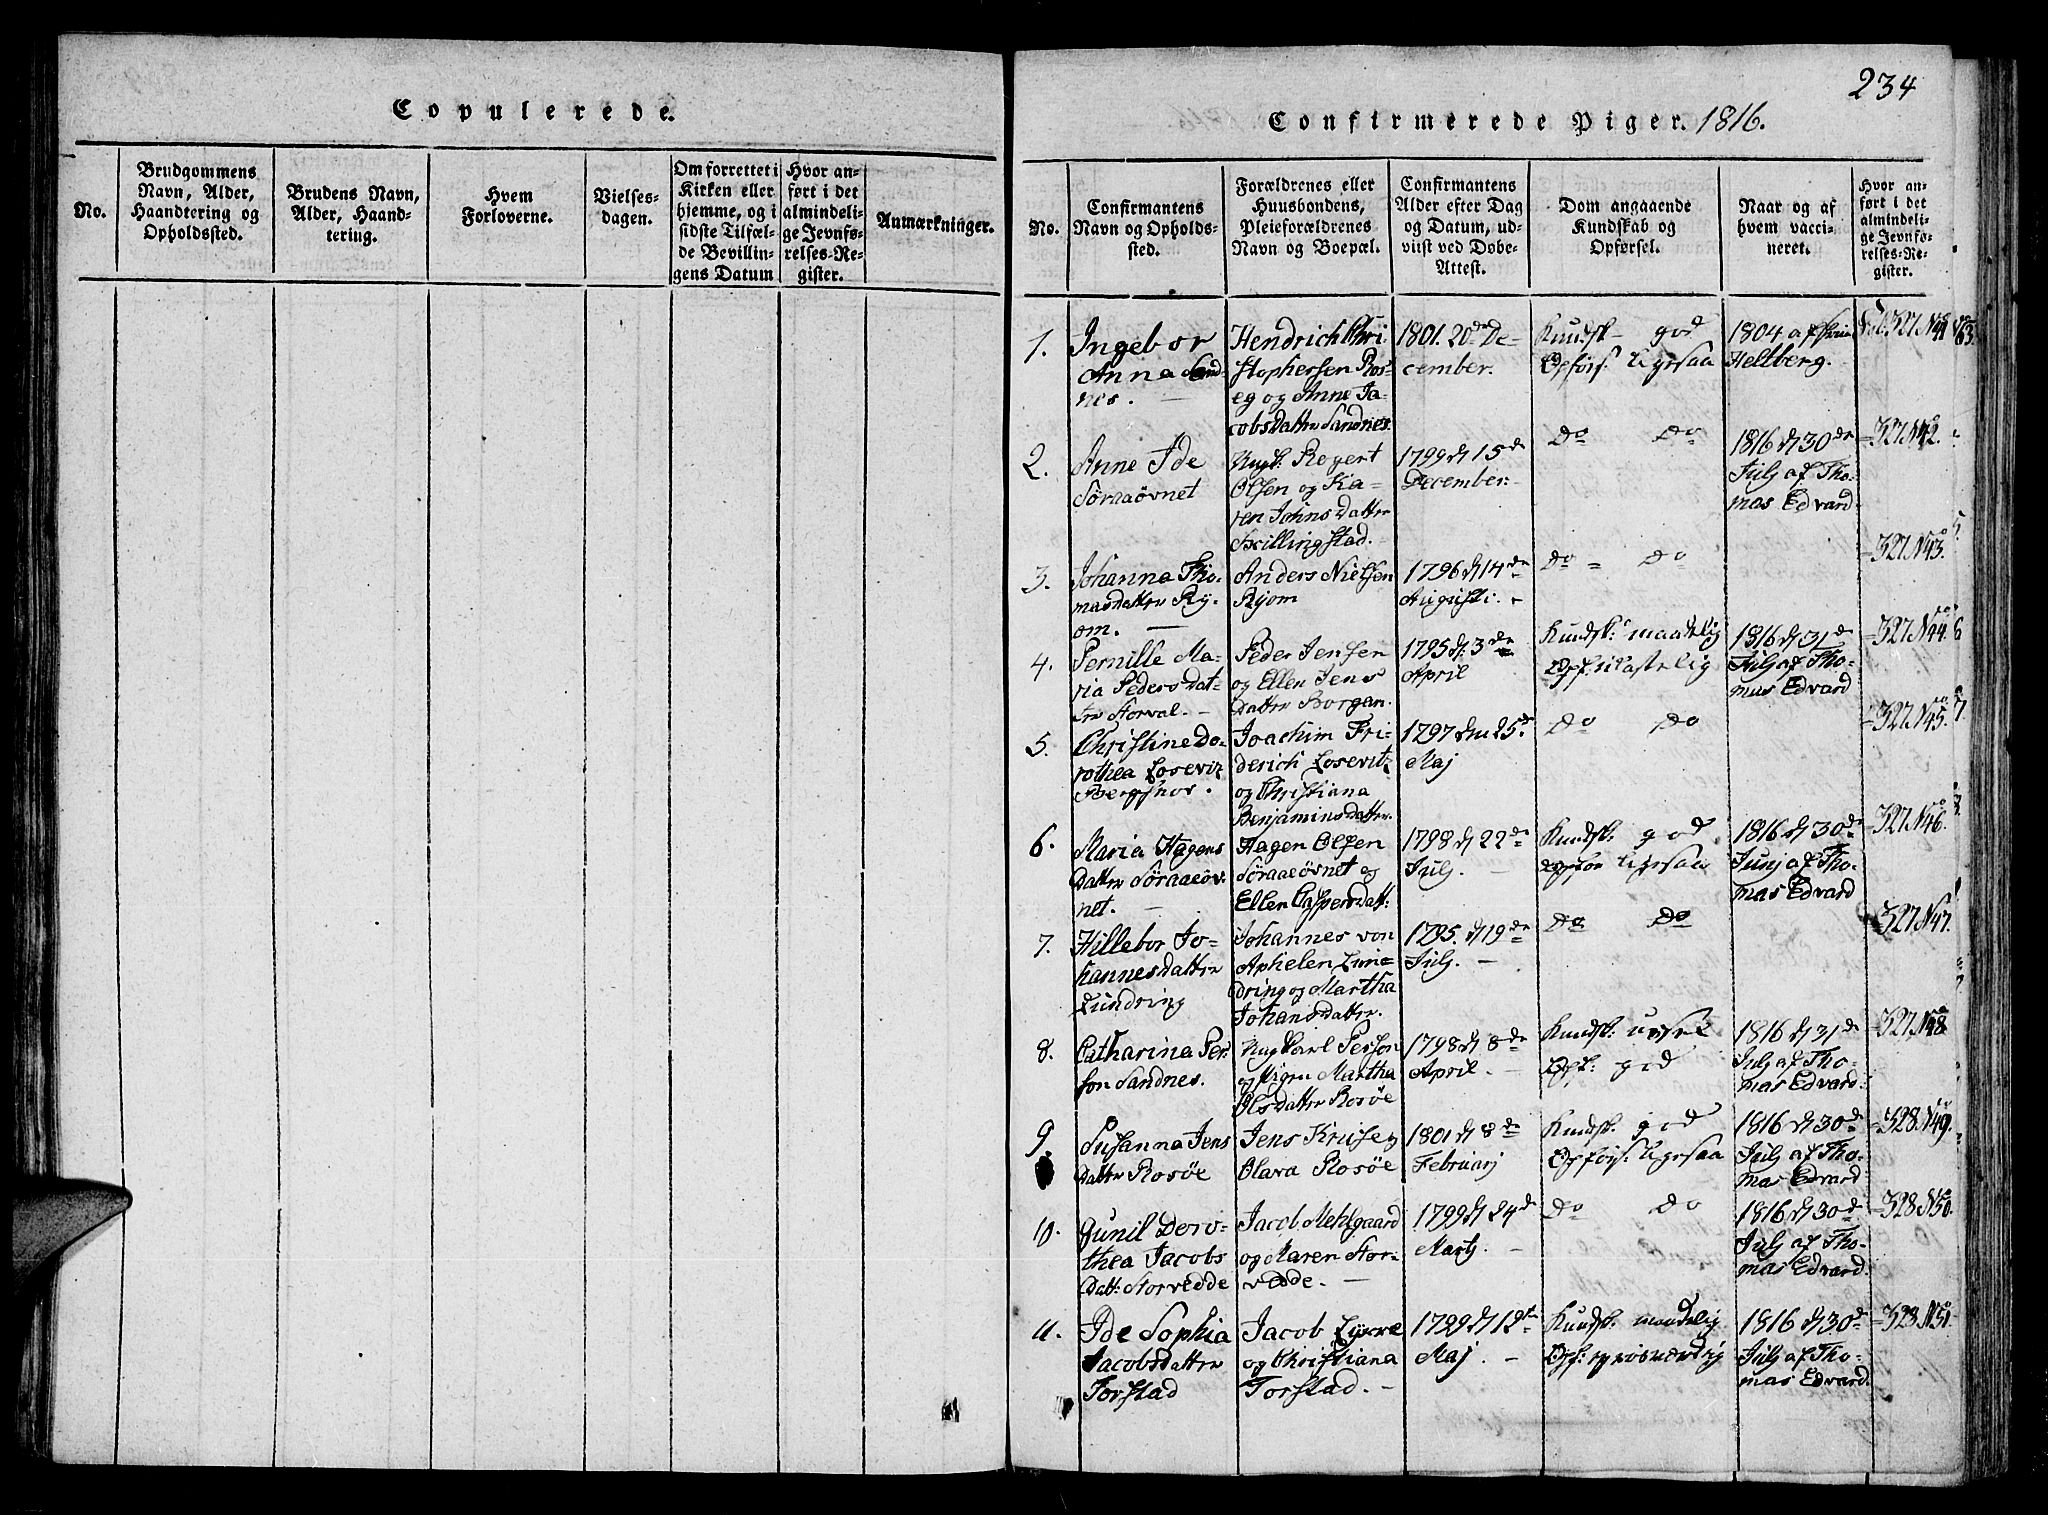 Copulerede.
No.
Brudgommens
Navn, Alder,
Haandtering og
Opholdssted.
Brudens Navn,
Alder, Haand-
tering.
Hvem
Forloverne.
Vielses-
dagen.
Om forrettet i
Kirken eller
hjemme, og i
sidste Tilfæl-
de Bevillin-
gens Datum
Hvor an-
ført i det
almindeli-
ge Jevnfø-
relses-Re-
gister.
Anmærkninger.
234
Confirmerede Piger. 1816.
No.
Confirmantens
Navn og Opholds-
sted.
Forældrenes eller
Huusbondens,
Pleieforældrenes
Navn og Boepæl.
Confirmantens
Alder efter Dag
og Datum, ud-
viist ved Døbe-
Attest.
Dom angaaende
Kundskab og
Opførsel.
Naar og af
hvem vacci-
neret.
Hvor an-
ført i det
almindeli-
ge Jevnfø-
relses-Re-
gister.
1.
Ingebor
Anna Sand-
nes.
Hendrich Chri
stophersen Ros-
eg og Anne Ja-
cobsDatter Sandnes.
1801. 20de De-
cember.
Kundsk- god
Opførs: ligesaa
1804 af
Heltberg.
327 No 41
2.
Anne Ide
Søraaövnet
Ungk. Rogert
Olsen og Ka-
ren JohnsDatter
Skillingstad.
1799 d 15de
December:
Do Do
1816 d 30de
Julj af Tho-
mas Edvard
327 No 42.
3.
Johanna Tho-
masdatter Ry-
om.
Anders Nielsen
Ryom
1796 d 14de
Augusti.
Do = Do
327 No 43.
4.
Pernille Ma-
ria PedersDat-
ter Storval.
Peder Jensen
og Ellen Jens
Datter Borgan.
1795 d: 3de
April
Kundsk: maadelig
Opf: ulastelig
1816 d 31de
Julj af Tho-
mas Edvard
327 No 44.
5.
Christine Do-
rothea Losevitz
Joachim Fri-
derich Losevitz
og Christiana
Benjaminsdatter.
1797 den 25de
Maj
Do Do
327 No 45.
6.
Maria Hagens
Datter Søraaeöv-
net.
Hagen Olsen
Søraaeövnet og
Ellen CaspersDatt:
1798 d 22de
Julj.
Kundsk: god
Opför ligesaa
1816 d 30de
Junj af Tho-
mas Edvard
327 No 46.
7.
Hillebor Jo-
hannesdatter
Lundring
Johannes von
Aphelen Lun-
dring og Martha
Johansdatter.
1795. d 19de
Julj.
Do Do
327 No 47.
8.
Catharina Per-
son Sandnes.
Ungkarl Person
og Pigen Martha
OlsDatter Rosöe
1798 d 8de
April.
Kundsk: ussel
Opf: god
1816 d 31de
Julj af Tho-
mas Edvard.
327 No 48
9.
Susanna Jens
Datter Rosöe
Jens Kruse og
Olava Rosöe
1801 d 8de
Februarj
Kundsk: god
Opførs: ligesaa
1816 d 30de
Julj af Tho-
mas Edvard
328 No 49.
10.
Gunil Doro-
thea Jacobs
Datt: Storvedde
Jacob Mehlgaard
og Maren Stor-
vedde.
1799 d 24de
Martj.
Do Do
1816 d 30de
Julj af Tho-
mas Edvard.
328 No 50.
11.
Ide Sophia
Jacobsdatter
Torstad
Jacob Lycke
og Christiana
Torstad.
1799 d 12te
Maj.
Kundsk: maadelig
Opf: roesværdig
1816 d 30de
Julj af Tho-
mas Edvard.
328 No 51.